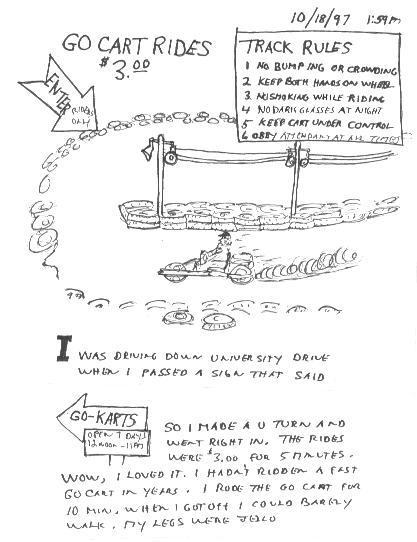 10/18/97 1:59pm
GO CART RIDES
$3.00
ENTER
RIDERS
ONLY
TRACK RULES
1 NO BUMPING OR CROWDING
2 KEEP BOTH HANDS ON WHEEL
3 NO SMOKING WHILE RIDING
4 NO DARK GLASSES AT NIGHT
5 KEEP CART UNDER CONTROL
6 OBEY ATTENDANT AT ALL TIMES
I WAS DRIVING DOWN UNIVERSITY DRIVE
WHEN I PASSED A SIGN THAT SAID
GO-KARTS
OPEN 7 DAYS
12 NOON - 11PM
SO I MADE A U TURN AND
WENT RIGHT IN. THE RIDES
WERE $3.00 FOR 5 MINUTES.
WOW, I LOVED IT. I HADN'T RIDDEN A FAST
GO CART IN YEARS. I RODE THE GO CART FOR
10 MIN. WHEN I GOT OFF I COULD BARELY
WALK. MY LEGS WERE JELLO